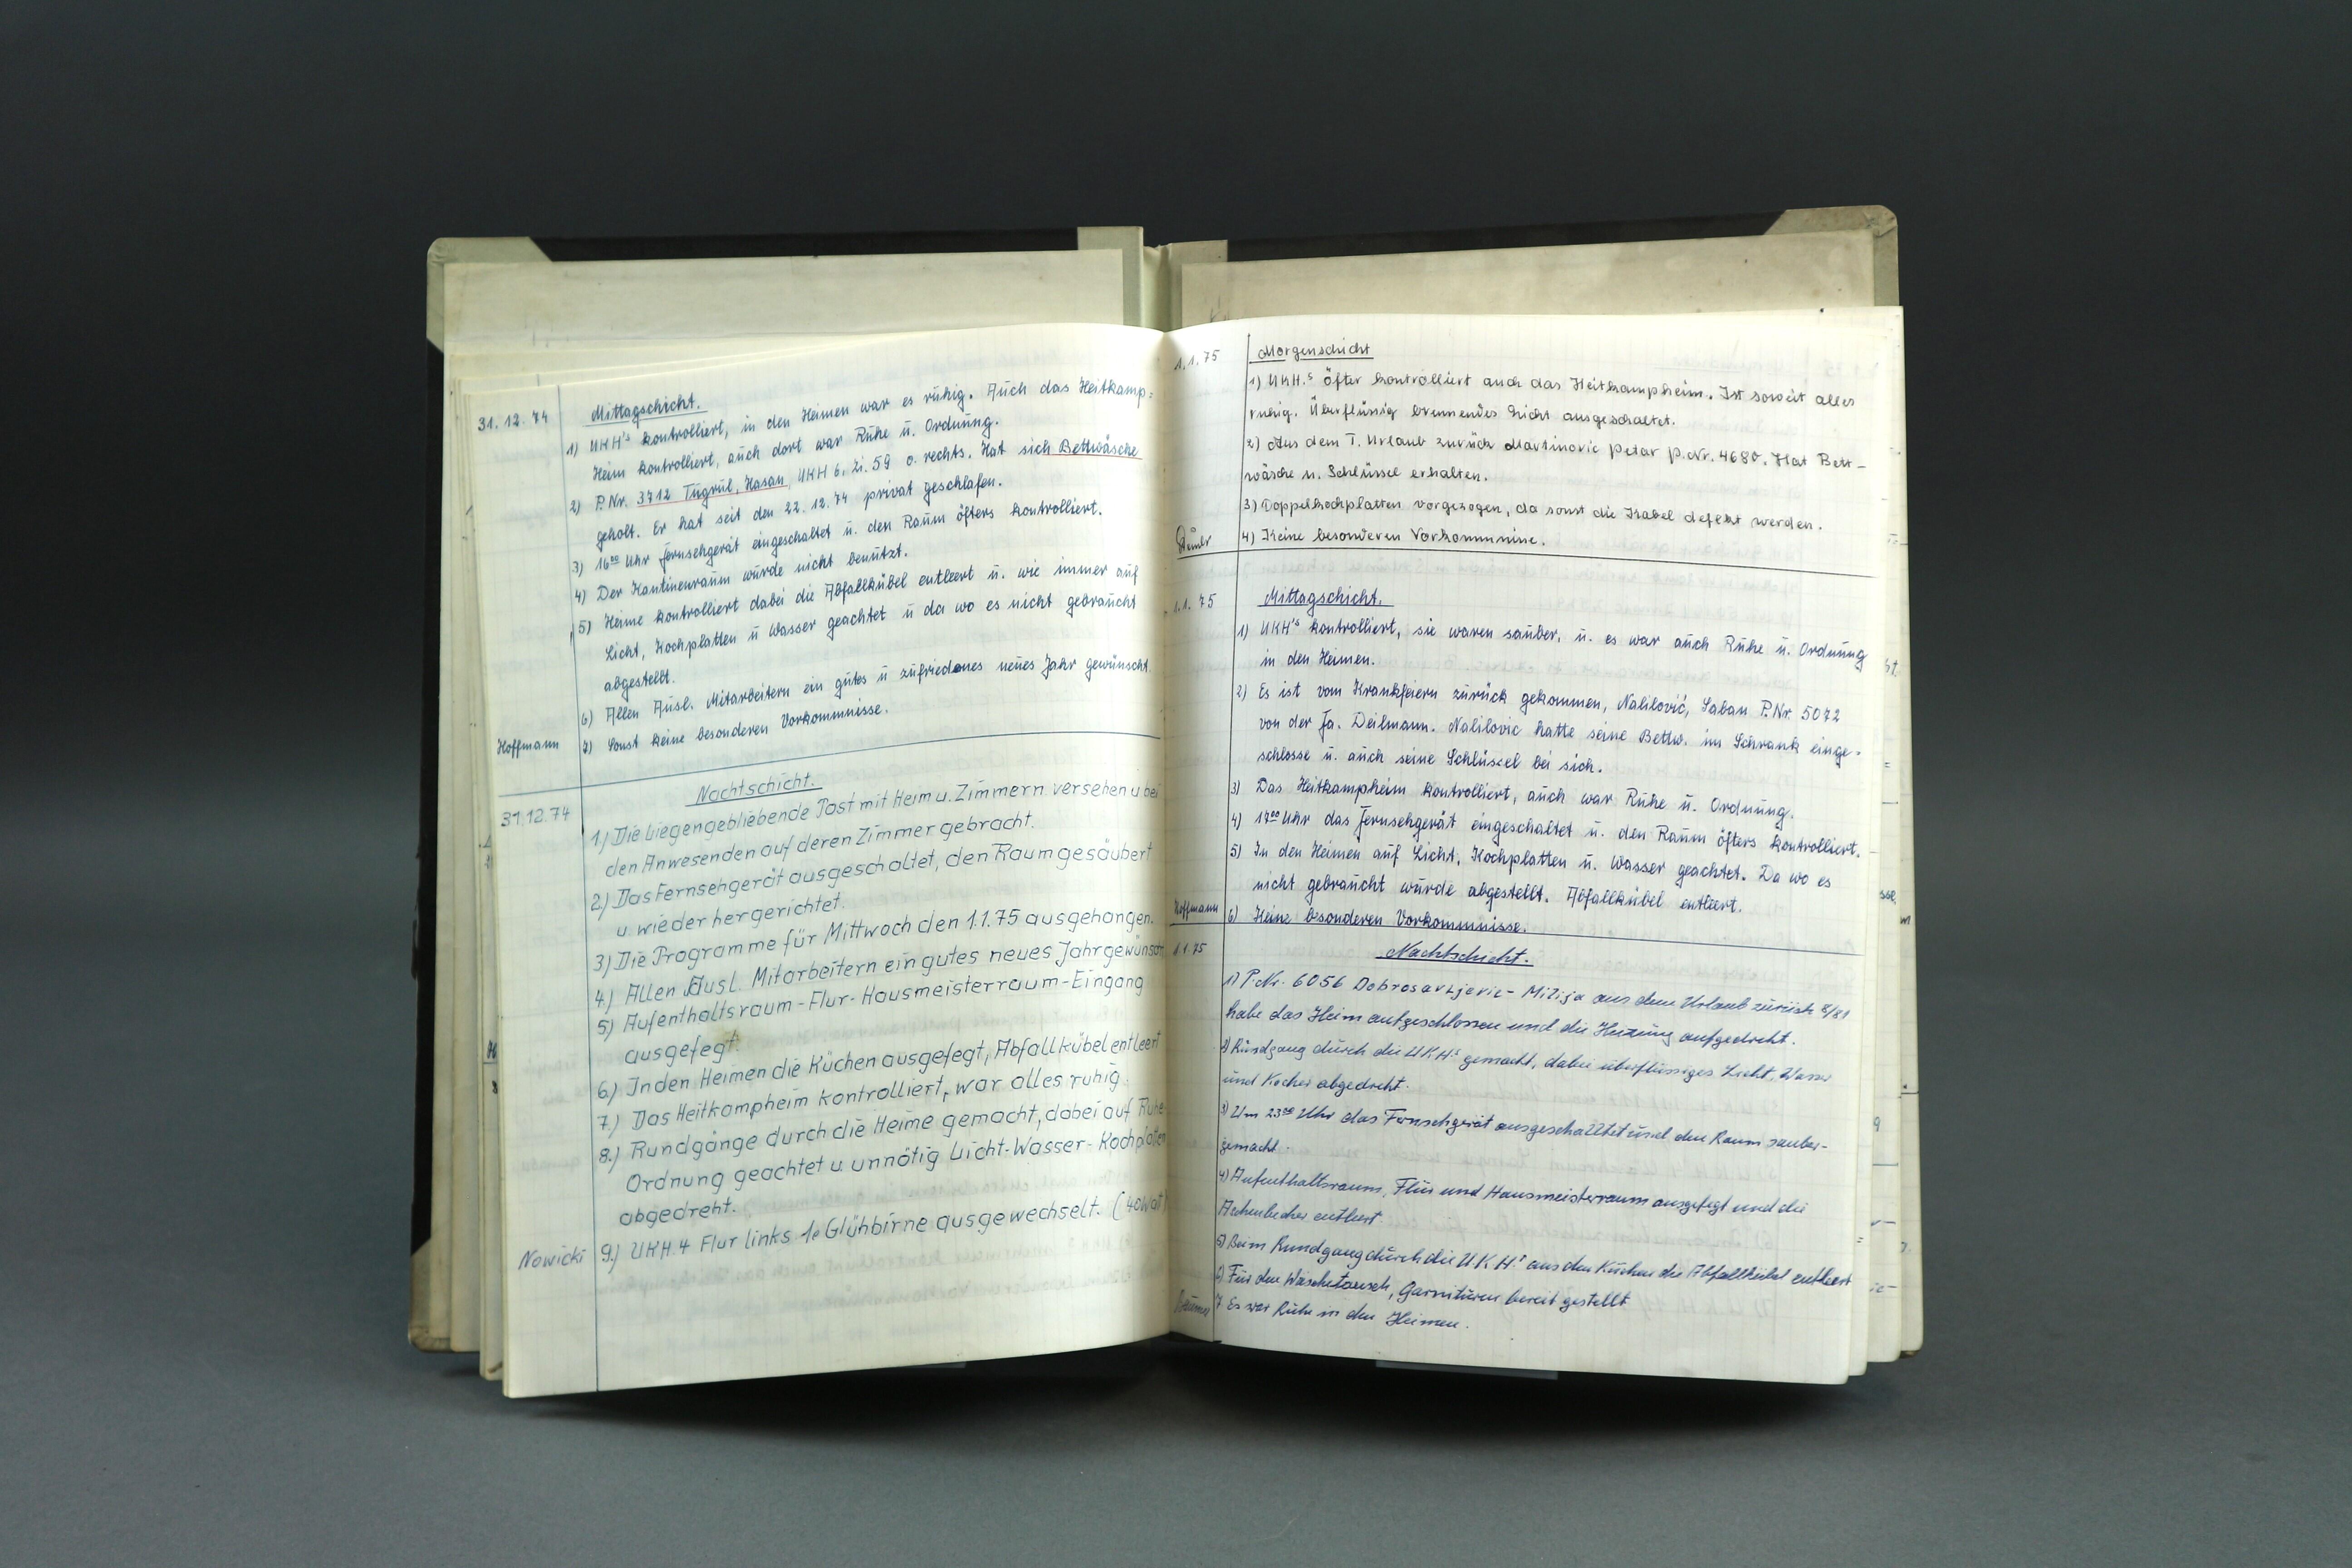 31.12.74 Mittagschicht.
1) UKH's kontrolliert, in den Heimen war es ruhig. Auch das Heitkamp=
Heim kontrolliert, auch dort war Ruhe u. Ordnung.
2) P.Nr. 3712 Tugrul, Hasan, UKH 6, Zi. 59 o. rechts. Hat sich Bettwäsche
geholt. Er hat seit den 22.12.74 privat geschlafen.
3) 16⁰⁰ Uhr Fernsehgerät eingeschaltet u. den Raum öfters kontrolliert.
4) Der Kantinenraum wurde nicht benutzt.
5) Heime kontrolliert dabei die Abfallkübel entleert u. wie immer auf
Licht, Kochplatten u Wasser geachtet u da wo es nicht gebraucht
abgestellt.
6) Allen Ausl. Mitarbeitern ein gutes u zufriedenes neues Jahr gewünscht.
Hoffmann 7) Sonst keine besonderen Vorkommnisse.
31.12.74 Nachtschicht.
1.) Die Liegengebliebende Post mit Heim u. Zimmern versehen u bei
den Anwesenden auf deren Zimmer gebracht.
2.) Das Fernsehgerät ausgeschaltet, den Raum gesäubert
u. wieder hergerichtet.
3.) Die Programme für Mittwoch den 1.1.75 ausgehangen.
4.) Allen Ausl. Mitarbeitern ein gutes neues Jahr gewünsch
5.) Aufenthaltsraum-Flur-Hausmeisterraum-Eingang
ausgefegt.
6.) In den Heimen die Küchen ausgefegt, Abfallkübel entleert
7.) Das Heitkampheim kontrolliert, war alles ruhig.
8.) Rundgänge durch die Heime gemacht, dabei auf Ruhe
Ordnung geachtet u. unnötig Licht-Wasser-Kochplatten
abgedreht.
Nowicki 9.) UKH.4 Flur links 1e Glühbirne ausgewechselt. (40Wat)
1.1.75 Morgenschicht
1) UKH.s öfter kontrolliert auch das Heitkampheim. Ist soweit alles
ruhig. Überflüssig brennendes Licht ausgeschaltet.
2) Aus dem T. Urlaub zurück Martinovic Petar P.Nr. 4680. Hat Bett-
wäsche u. Schlüssel erhalten.
3) Doppelkochplatten vorgezogen, da sonst die Kabel defekt werden.
4) Keine besonderen Vorkommnisse.
1.1.75 Mittagschicht.
1) UKH's kontrolliert, sie waren sauber, u. es war auch Ruhe u. Ordnung
in den Heimen.
2) Es ist vom Krankfeiern zurück gekommen, Nalilović, Saban P.Nr. 5072
von der Fa. Deilmann. Nalilovic hatte seine Bettw. im Schrank einge-
schlosse u. auch seine Schlüssel bei sich.
3) Das Heitkampheim kontrolliert, auch war Ruhe u. Ordnung.
4) 14⁰⁰ Uhr das Fernsehgerät eingeschaltet u. den Raum öfters kontrolliert.
5) In den Heimen auf Licht, Kochplatten u. Wasser geachtet. Da wo es
nicht gebraucht wurde abgestellt. Abfallkübel entleert.
Hoffmann 6) Keine besonderen Vorkommnisse.
1.1.75 Nachtschicht.
1) P.Nr. 6056 Dobrosavljevic-Milija aus dem Urlaub zurück 8/81
habe das Heim aufgeschlossen und die Heizung aufgedreht.
2) Rundgang durch die U.K.H.s gemacht, dabei überflüssiges Licht, Wasser
und Kocher abgedreht.
3) Um 23³⁰ Uhr das Fernsehgerät ausgeschalltet und den Raum sauber-
gemacht.
4) Aufenthaltsraum, Flur und Hausmeisterraum ausgefegt und die
Aschenbecher entleert.
5) Beim Rundgang durch die U K H.s aus den Küchen die Abfallkübel entleert
6) Für den Wäschetausch, Garnituren bereit gestellt
7 Es war Ruhe in den Heimen.